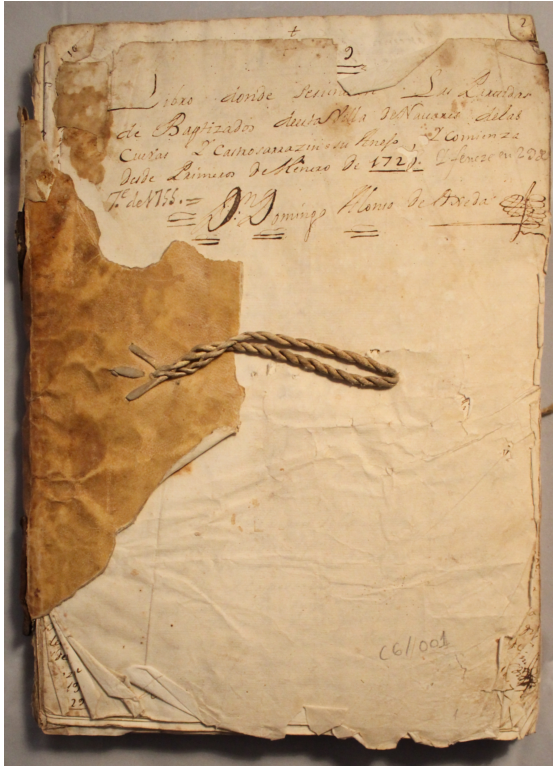 10
2
9
Livro donde se Las Partidas
de Baptizados desta Villa de Navares delas
Cuebas Y Castrosarrazin su Anejo Y Comienza
desde Primero de Henero de 1721. Y fenece en 2 de
7.e de 1755.
D.n Domingo Alonso de
C6/001